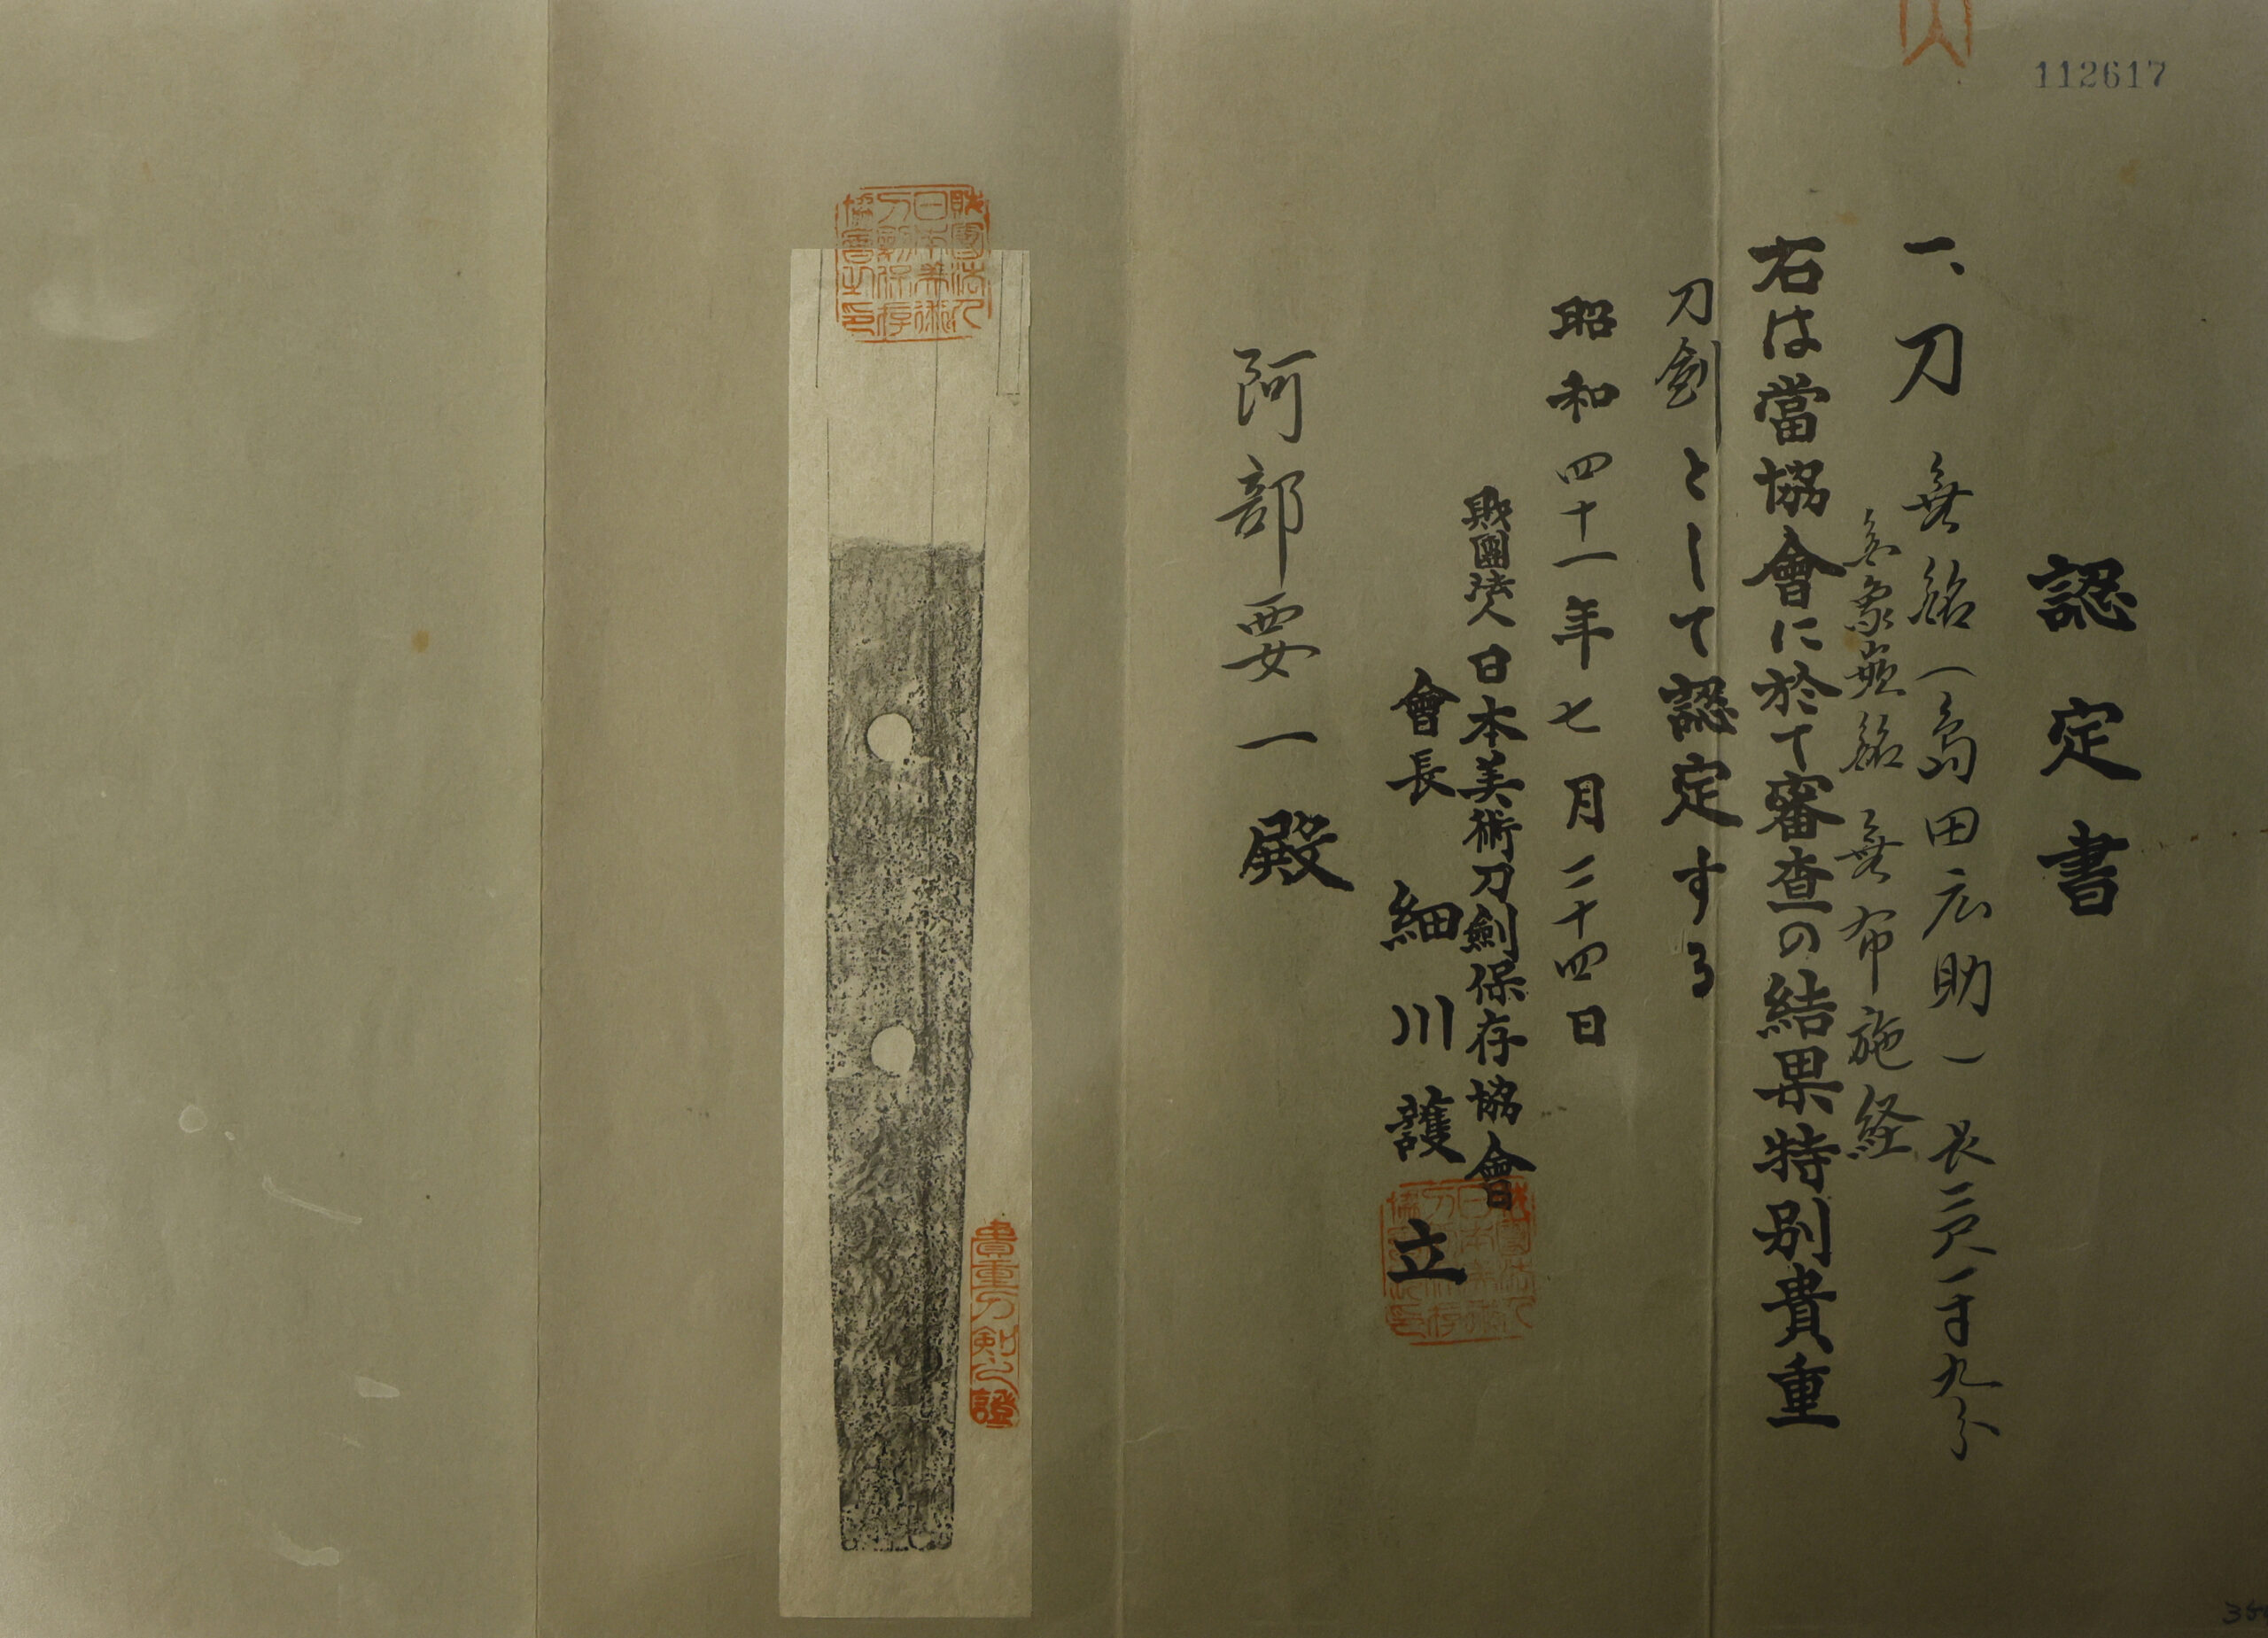 112617
認定書
一、刀 無銘(島田広助) 長二尺一寸九分
右は當協會に於て審査の結果特別貴重
刀劍として認定する
昭和四十一年七月二十四日
財團法人日本美術刀劍保存協會
會長 細川護立
阿部要一殿
財團法人日本美術刀剣保存協會之印
貴重刀剣之證